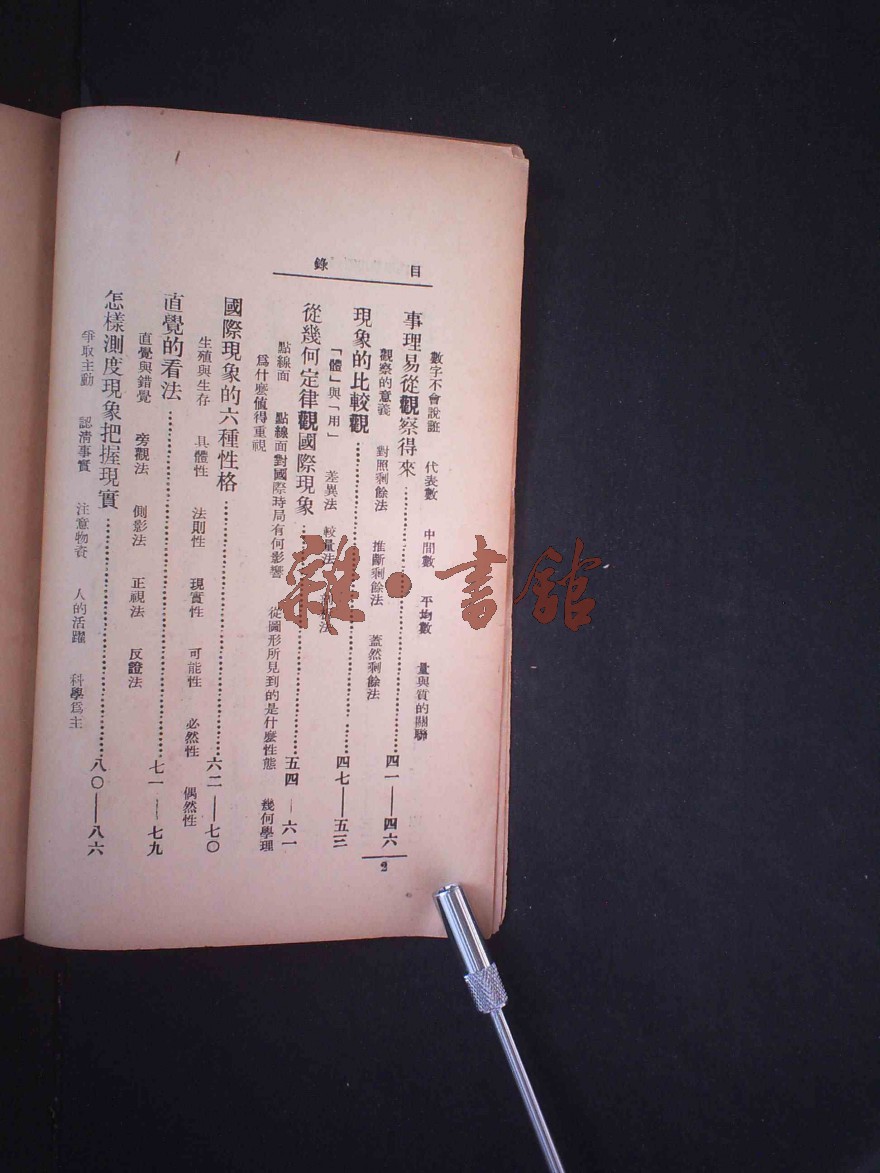 目錄
數字不會說謊 代表數 中間數 平均數 量與質的關聯
事理易從觀察得來……四一——四六
觀察的意義 對照剩餘法 推斷剩餘法 蓋然剩餘法
現象的比較觀……四七——五三
「體」與「用」 差異法 較量法
從幾何定律觀國際現象……五四——六一
點線面 點線面對國際時局有何影響 從圖形所見到的是什麼性態 幾何學理
為什麼值得重視
國際現象的六種性格……六二——七〇
生殖與生存 具體性 法則性 現實性 可能性 必然性 偶然性
直覺的看法……七一——七九
直覺與錯覺 旁觀法 側影法 正視法 反證法
怎樣測度現象把握現實……八〇——八六
爭取主動 認清事實 注意物資 人的活躍 科學爲主
2
雜·書館